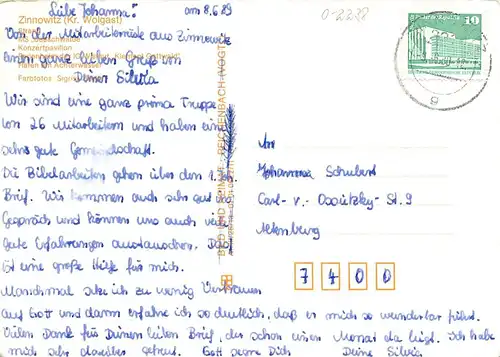 Liebe Johanna! am 8.6.89
0-2228
Zinnowitz (Kr. Wolgast)
Von der Mitarbeiterrüste aus Zinnowitz
Konzertpavillon
einen ganz lieben Gruß von
Deiner Silvia
Hafen am Achterwasser
Farbfotos
Wir sind eine ganz prima Truppe
von 26 Mitarbeitern und haben eine
sehr gute Gemeinschaft.
Die Bibelarbeiten gehen über den 1. Joh.
Brief. Wir kommen auch sehr gut ins
Gespräch und können uns auch viele
gute Erfahrungen austauschen. Das
ist eine große Hilfe für mich.
Manchmal setze ich zu wenig Vertrauen
auf Gott und dann erfahre ich so deutlich, daß er mich so wunderbar führt.
Vielen Dank für Deinen lieben Brief, der schon einen Monat da liegt. Ich habe
mich sehr darüber gefreut. Gott segne Dich Deine Silvia
BILD UND HEIMAT REICHENBACH (VOGTL)
10
g
An
Johanna Schubert
Carl-v.-Ossietzky-St. 9
Altenburg
7400